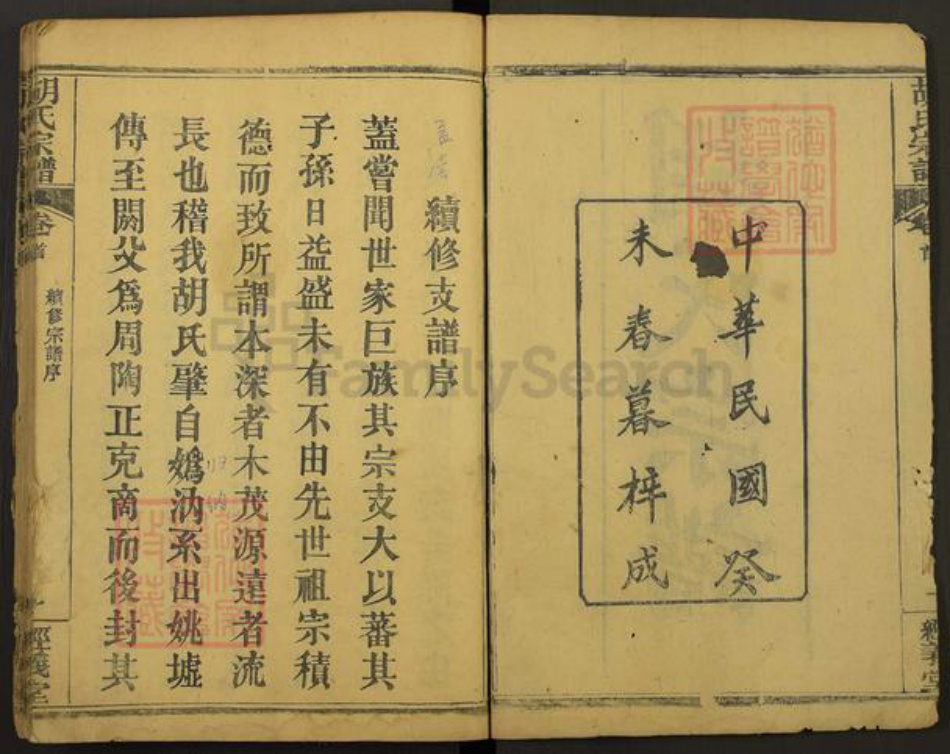 胡氏宗譜
中華民國癸
未春暮梓成
續修支譜序
蓋嘗聞世家巨族其宗支大以蕃其
子孫日益盛未有不由先世祖宗積
德而致所謂本深者木茂源遠者流
長也稽我胡氏肇自媯汭系出姚墟
傳至閼父爲周陶正克啇而後封其
胡氏宗譜
卷首
續修宗譜序
一
經義堂
FamilySearch